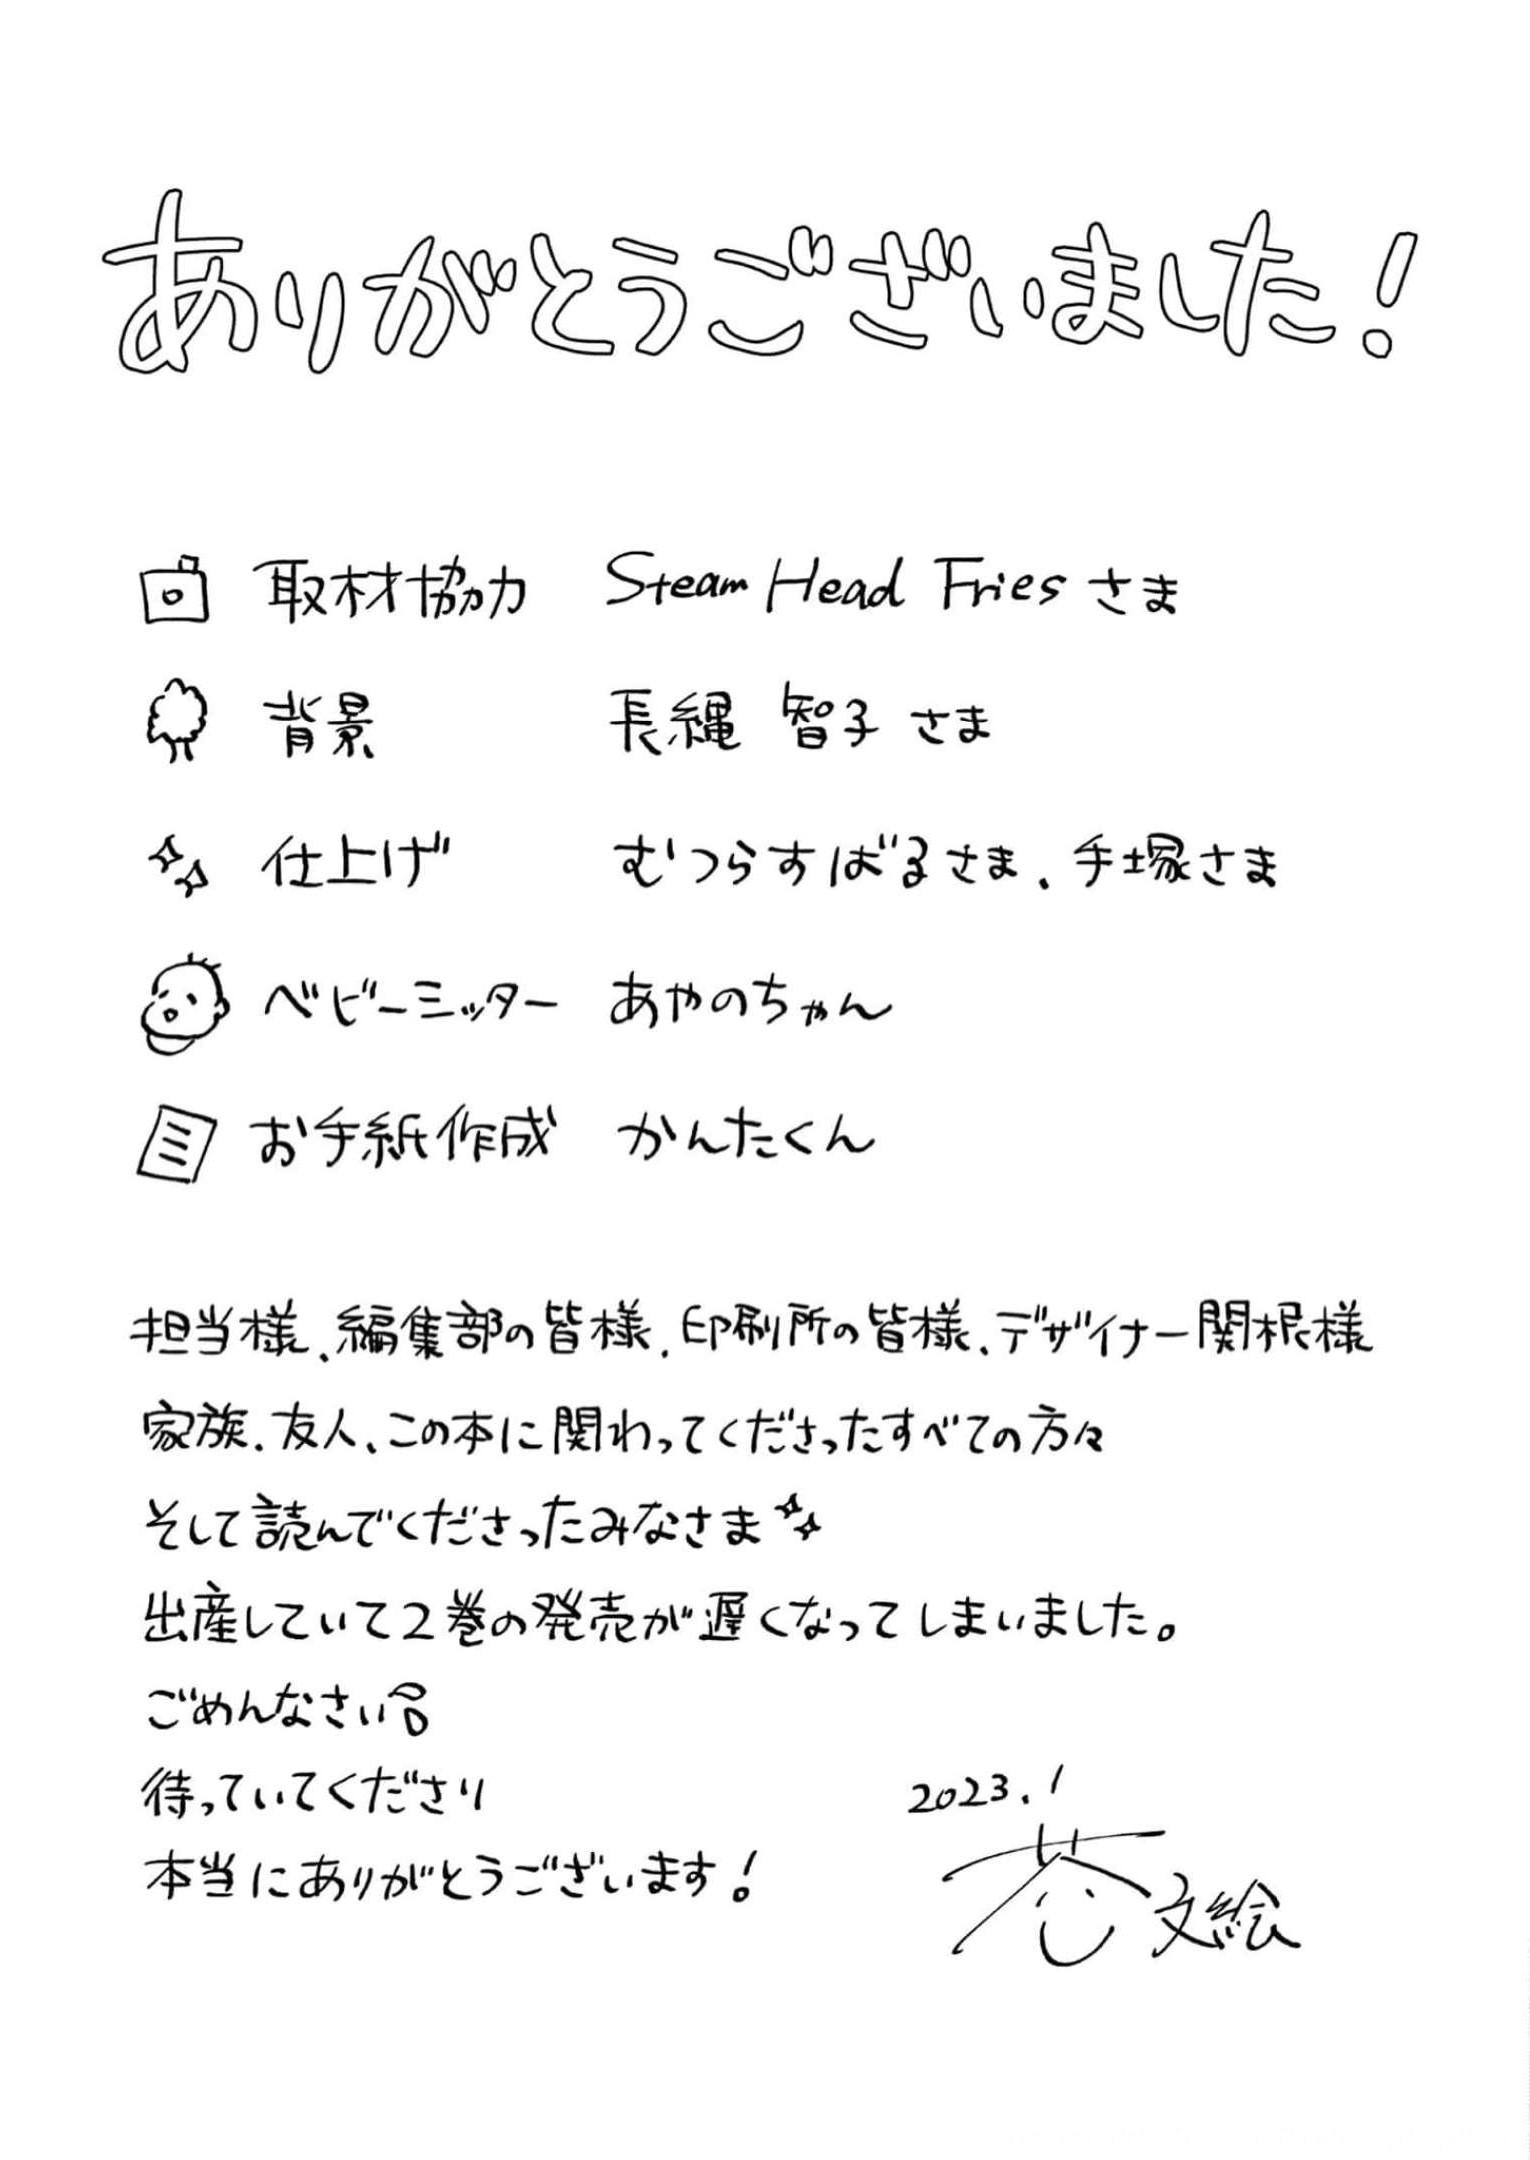 ありがとうございました!
取材協力 Steam Head Fries さま
背景 長縄 智子 さま
仕上げ むつらすばるさま、手塚さま
ベビーミッター あやのちゃん
お手紙作成 かんたくん
担当様、編集部の皆様、印刷所の皆様、デザイナー関根様
家族、友人、この本に関わってくださったすべての方々
そして読んでくださったみなさま
出産していて2巻の発売が遅くなってしまいました。
ごめんなさい
待っていてくださり
本当にありがとうございます!
2023.1
文絵